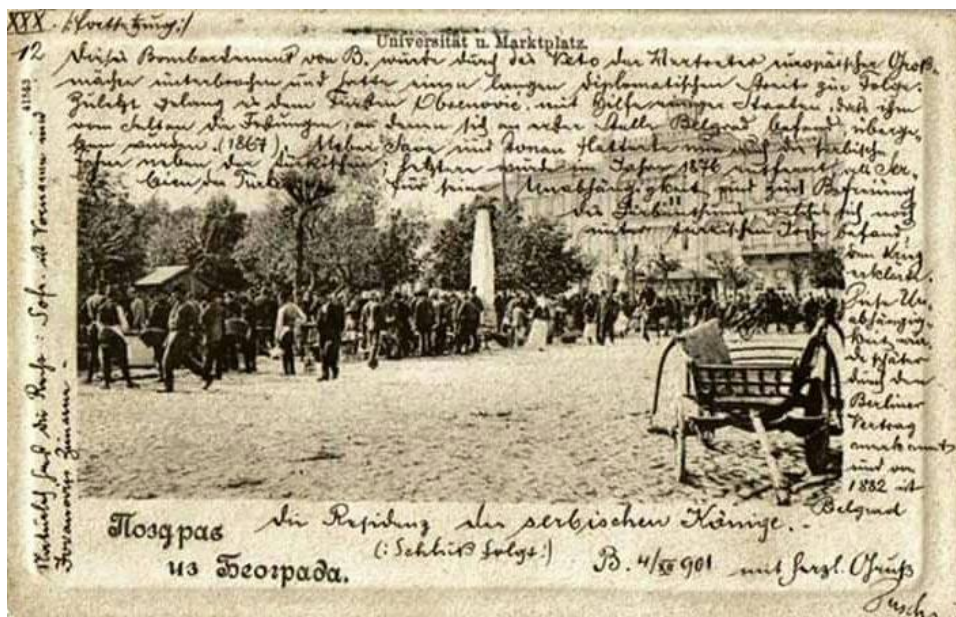 XXX. (: Fortsetzung :)
12
Universität u. Marktplatz.
Dieses Bombardement von B. wurde durch das Veto der Vertreter europäischer Groß-
mächte unterbrochen und hatte einen langen diplomatischen Streit zur Folge.
Zuletzt gelang es dem Fürsten Obrenović, mit Hilfe einiger Staaten, daß ihm
vom Sultan die Festungen, an denen sich an erster Stelle Belgrad befand, überge-
ben wurden. (1867). Ueber Save und Donau flatterte nun auch die serbische
Fahne neben der türkischen; letztere wurde im Jahre 1876 entfernt, als Ser-
bien der Türkei für seine Unabhängigkeit und zur Befreiung
des Serbenthums, welches sich noch
unter türkischem Joche befand
den Krieg
erklärte.
Diese Un-
abhängig-
keit wur-
de später
durch den
Berliner
Vertrag
anerkannt
und von
1882 ist
Belgrad
die Residenz der serbischen Könige.
(: Schluß folgt :)
Поздрав
из Београда.
B. 4/XII 901 mit herzl. Gruß
41563